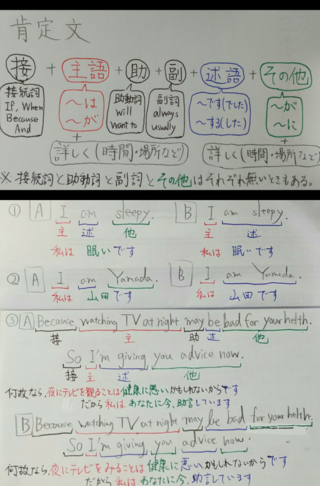 肯定文
接 + 主語 + 助 + 副 + 述語 + その他
接続詞 If, When Because And
〜は 〜が
助動詞 will want to
副詞 always usually
〜です(でした) 〜する(した)
〜が 〜に
+ +
詳しく(時間・場所など) 詳しく(時間・場所など)
※ 接続詞と助動詞と副詞とその他はそれぞれ無いときもある。
① A I am sleepy. B I am sleepy.
主 述 他 主 述
私は 眠いです 私は 眠いです
② A I am Yamada. B I am Yamada.
私は 山田です 私は 山田です
③ A Because watching TV at night may be bad for your helth.
接 主 助 述 他
So I'm giving you advice now.
接 主 述 他
何故なら、夜にテレビを観ることは健康に悪いかもしれないからです
だから私はあなたに今、助言しています
B Because watching TV at night may be bad for your helth.
So I'm giving you advice now.
何故なら、夜にテレビをみることは健康に悪いかもしれないからです
だから私はあなたに今、助言しています